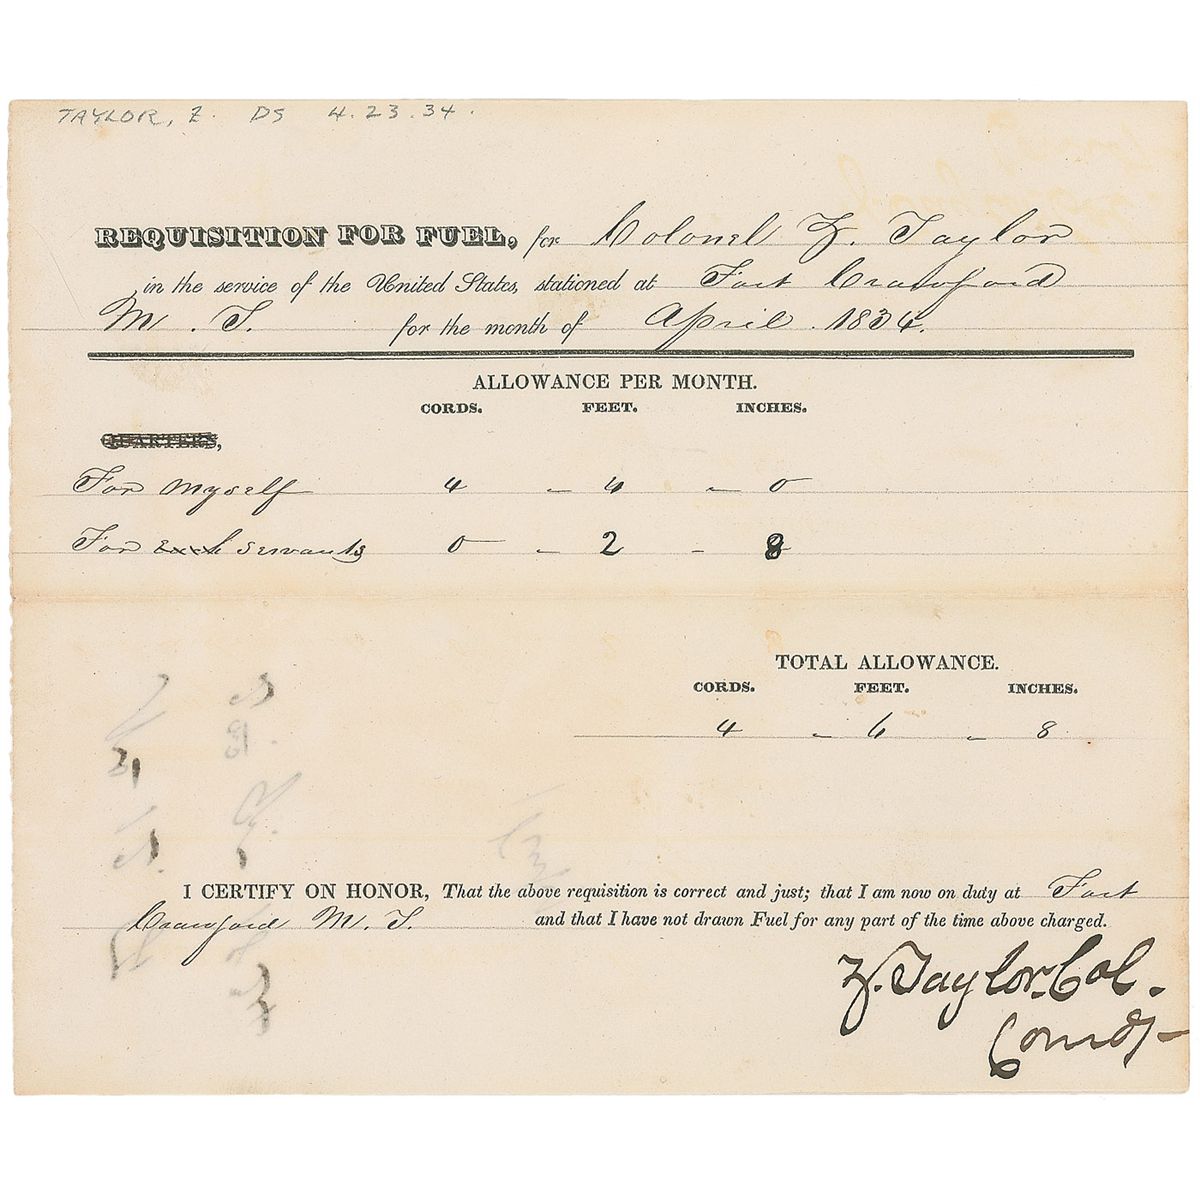 TAYLOR, Z. DS 4.23.34.
REQUISITION FOR FUEL, for Colonel Z. Taylor
in the service of the United States, stationed at Fort Crawford
M. T. for the month of April. 1834.
ALLOWANCE PER MONTH.
CORDS. FEET. INCHES.
QUARTERS,
For myself 4 - 4 - 0
For servants 0 - 2 - 8
TOTAL ALLOWANCE.
CORDS. FEET. INCHES.
4 - 6 - 8
I CERTIFY ON HONOR, That the above requisition is correct and just; that I am now on duty at Fort
Crawford M. T. and that I have not drawn Fuel for any part of the time above charged.
Z. Taylor. Col.
Comdg